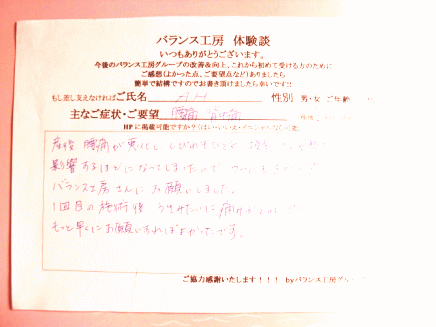 バランス工房 体験談
いつもありがとうございます。
今後のバランス工房グループの改善&向上、これから初めて受ける方のために
ご感想(よかった点、ご要望点など)ありましたら
簡単で結構ですのでお書き頂けましたら幸いです!!
もし差し支えなければご氏名 A H 性別 男・女 ご年齢
主なご症状・ご要望 腰痛 背中痛
HPに掲載可能ですか?(はい・いいえ・イニシャルなら可能)
産後 腰痛が悪化し
影響するほどになってしまったので
バランス工房さんに お願いしました。
1回目の施術後 うそみたいに痛みが
もっと早くにお願いすればよかったです。
ご協力感謝いたします!!! byバランス工房グループ